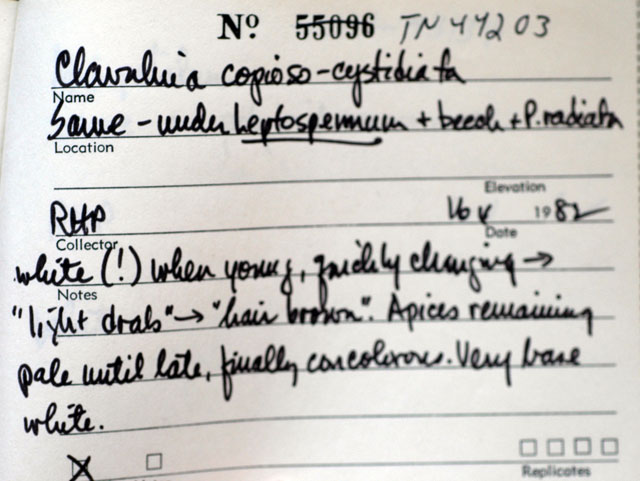 Nº 55096 TN 44203
Clavulinia copioso-cystidiata
Name
Same - under Leptospermum + beech + P. radiata
Location
Elevation
RHP 16 V 1982
Collector Date
white (!) when young, quickly changing →
Notes
"light drab" → "hair brown". Apices remaining
pale until late, finally concolorous. Very base
white.
Replicates